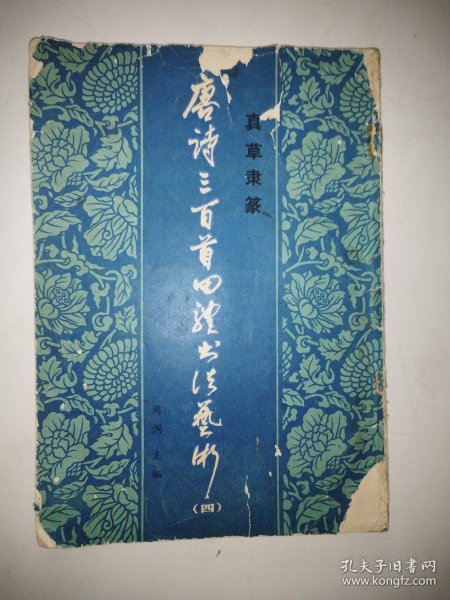 真草隶篆
唐诗三百首四体书法艺术
(四)
周倜 主编
孔夫子旧书网
www.kongfz.com